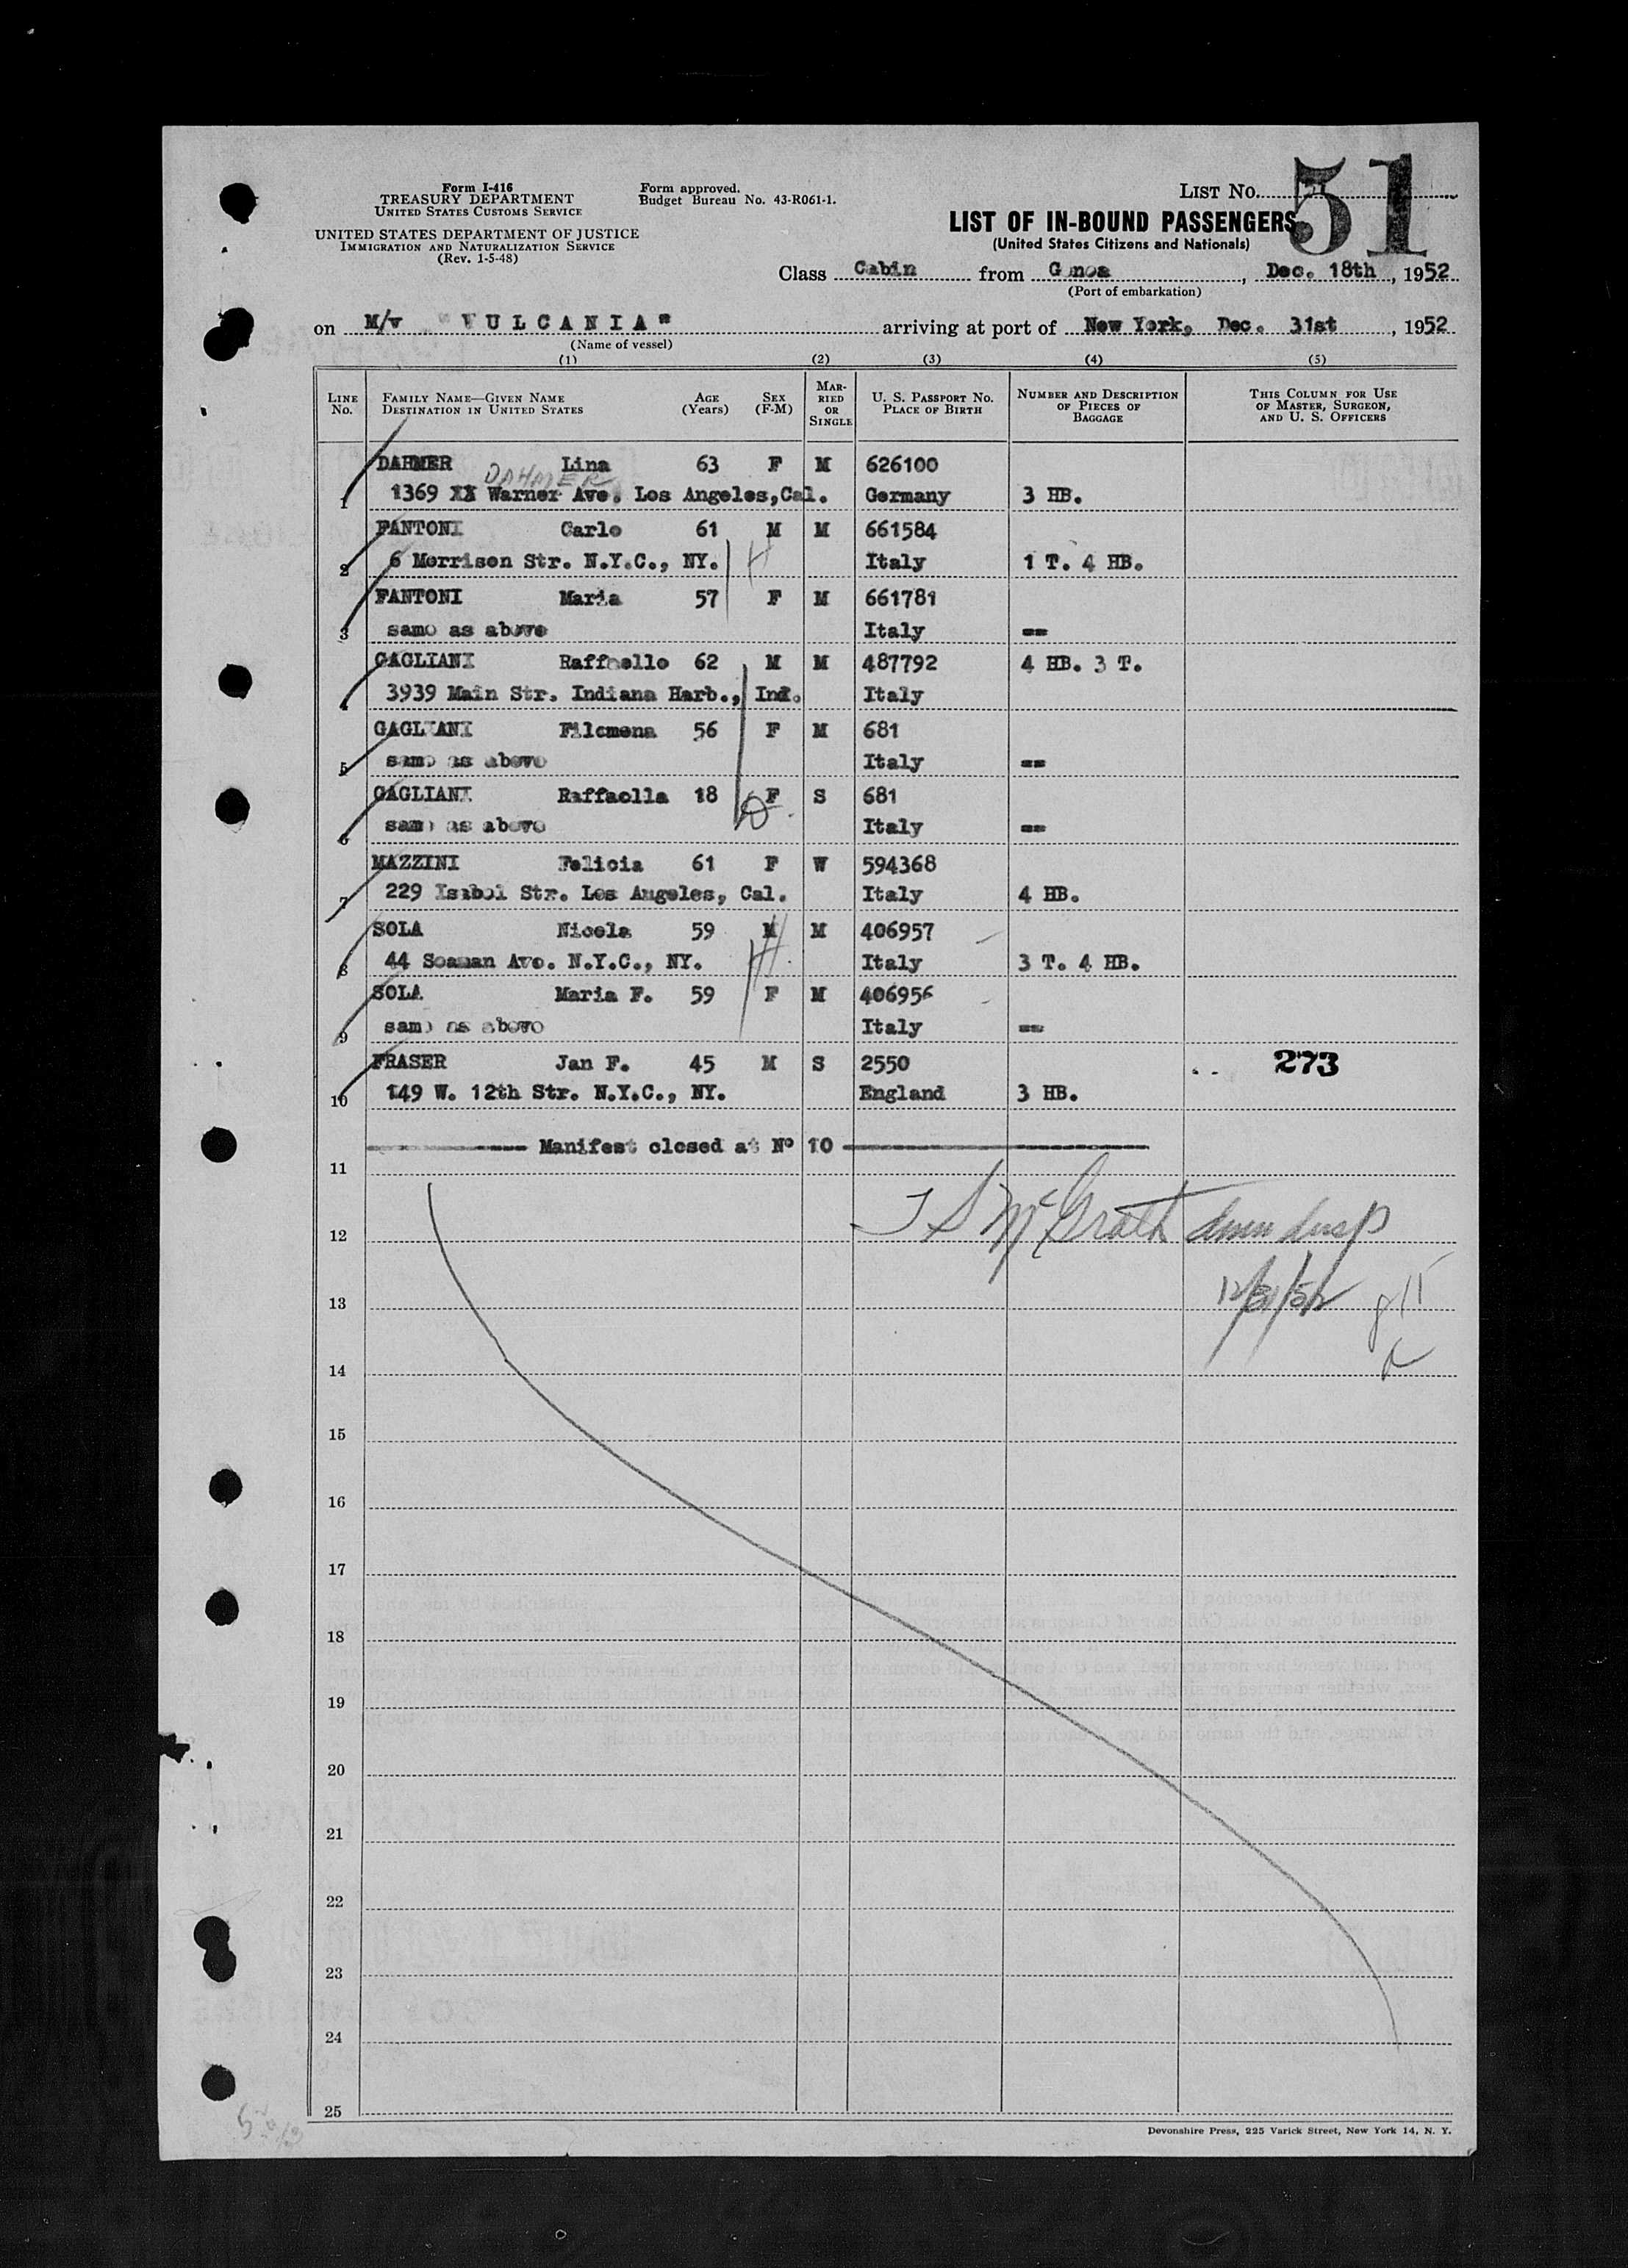 Form I-416
TREASURY DEPARTMENT
UNITED STATES CUSTOMS SERVICE
UNITED STATES DEPARTMENT OF JUSTICE
IMMIGRATION AND NATURALIZATION SERVICE
(Rev. 1-5-48)
Form approved.
Budget Bureau No. 43-R061-1.
LIST No. 51
LIST OF IN-BOUND PASSENGERS
(United States Citizens and Nationals)
Class Cabin from G noa, Dec. 18th, 1952
(Port of embarkation)
on M/v "VULCANIA" arriving at port of New York, Dec. 31st, 1952
(Name of vessel)
(1) (2) (3) (4) (5)
LINE No. FAMILY NAME—GIVEN NAME DESTINATION IN UNITED STATES AGE (Years) SEX (F-M) MARRIED OR SINGLE U. S. PASSPORT No. PLACE OF BIRTH NUMBER AND DESCRIPTION OF PIECES OF BAGGAGE THIS COLUMN FOR USE OF MASTER, SURGEON, AND U. S. OFFICERS
DAHMER Lina 63 F M 626100
DAHMER
1 1369 XX Warner Ave. Los Angeles,Cal. Germany 3 HB.
FANTONI Carlo 61 M M 661584
2 6 Morrison Str. N.Y.C., NY. H Italy 1 T. 4 HB.
FANTONI Maria 57 F M 661781
3 same as above Italy --
GAGLIANI Raffaello 62 M M 487792 4 HB. 3 T.
4 3939 Main Str. Indiana Harb., Ind. Italy
GAGLIANI Filomena 56 F M 681
5 same as above Italy --
GAGLIANI Raffaella 18 F S 681
6 same as above Italy --
MAZZINI Felicia 61 F W 594368
7 229 Isabel Str. Los Angeles, Cal. Italy 4 HB.
SOLA Nicola 59 M M 406957
8 44 Seaman Ave. N.Y.C., NY. H Italy 3 T. 4 HB.
SOLA Maria F. 59 F M 406956
9 same as above Italy --
FRASER Jan F. 45 M S 2550 273
10 149 W. 12th Str. N.Y.C., NY. England 3 HB.
Manifest closed at Nº 10
11
T S McGrath Imm Insp
12
12/31/52
13
14
15
16
17
18
19
20
21
22
23
24
25
Devonshire Press, 225 Varick Street, New York 14, N. Y.